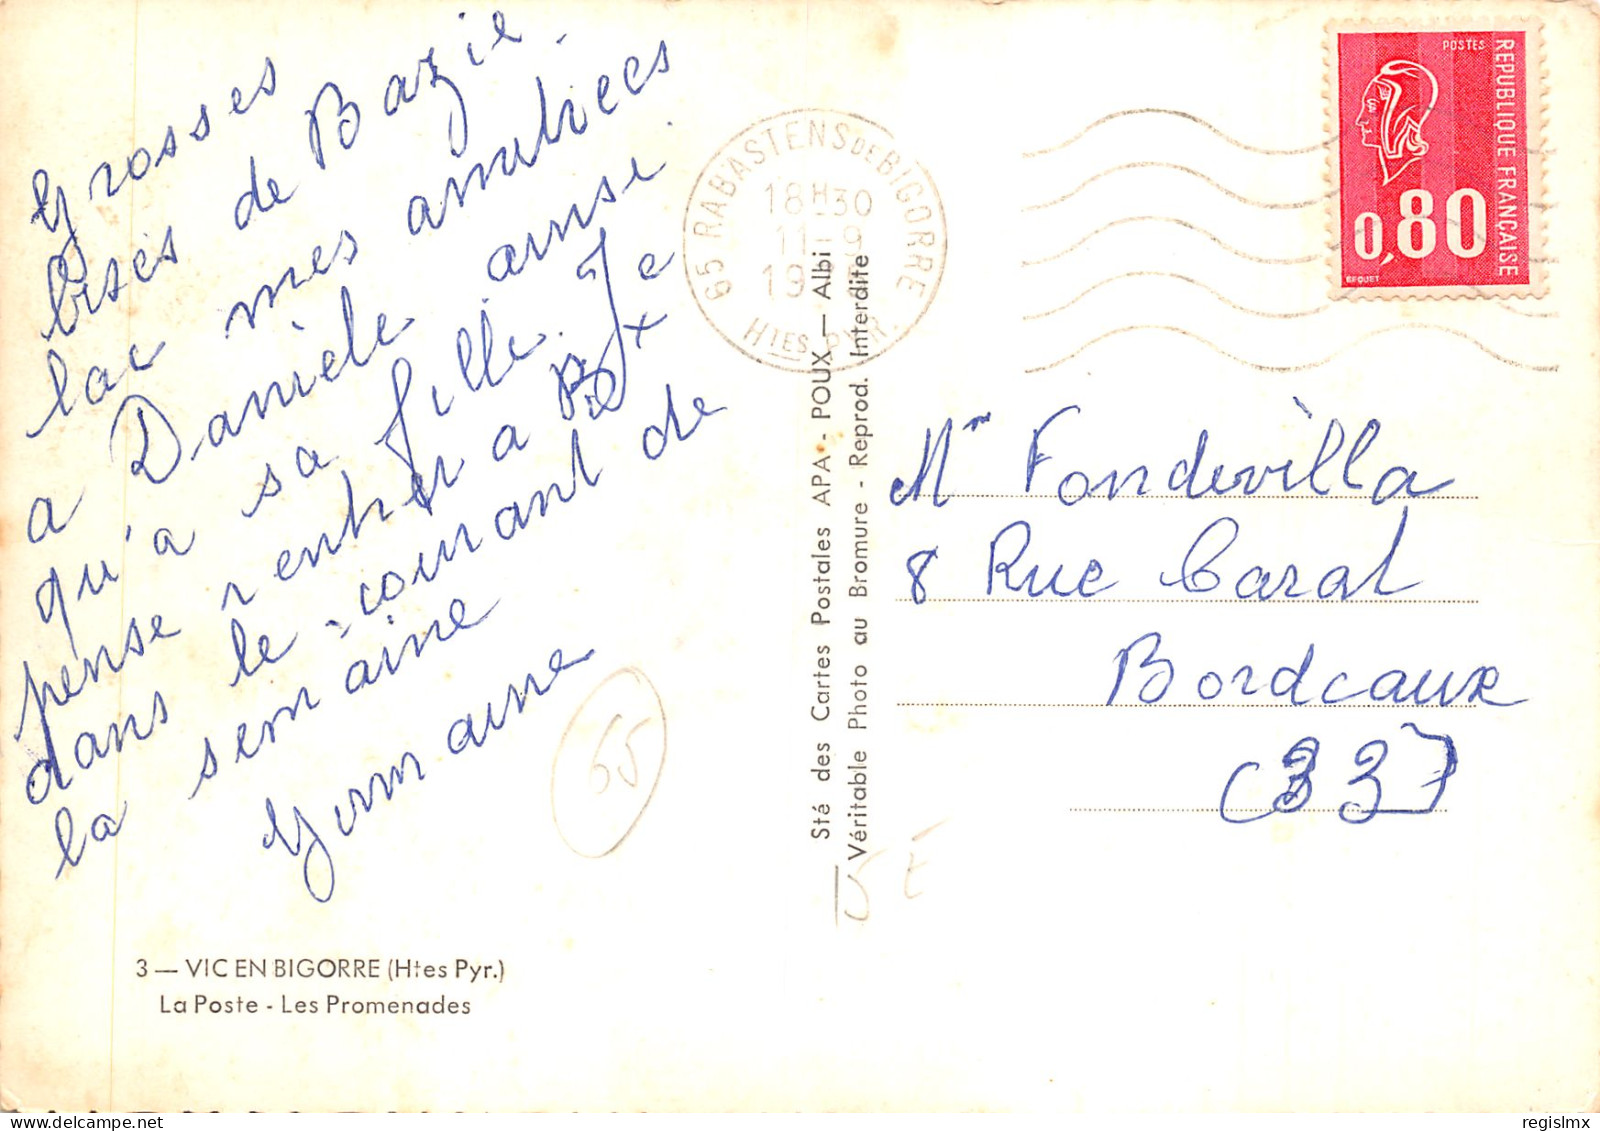 Grosses
bises de Bazie
lac mes amitiees
a Daniele ainsi
qu'a sa fille. Je
pense rentrer a Bx
dans le courant de
la semaine
Germaine
65
3 — VIC EN BIGORRE (Htes Pyr.)
La Poste - Les Promenades
65 RABASTENS DE BIGORRE
18H30
11 - 9
19
Htes PYR.
Sté des Cartes Postales APA - POUX — Albi
Véritable Photo au Bromure - Reprod. Interdite
POSTES
REPUBLIQUE FRANÇAISE
0,80
BEQUET
Mme Fondevilla
8 Rue Carat
Bordeaux
(33)
regislmx